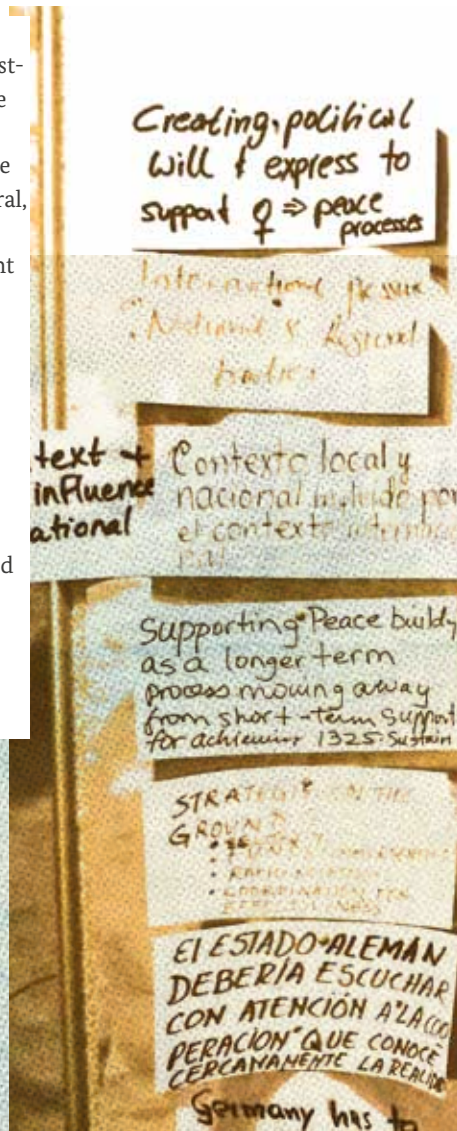 st-
e
e
ral,
nt
d
Creating political
will & express to
support ♀ ⇒ peace
processes
National & Regional
text +
influence
ational
Contexto local y
nacional incluido por
el contexto
Supporting Peace buildg
as a longer term
process moving away
from short-term support
for achieving 1325. Sustain
STRATEGIE ON THE
GROUND
El ESTADO ALEMÁN
DEBERÍA ESCUCHAR
CON ATENCIÓN A "LA COO
PERACIÓN" QUE CONOCE
CERCANAMENTE LA REALIDAD
Germany has to